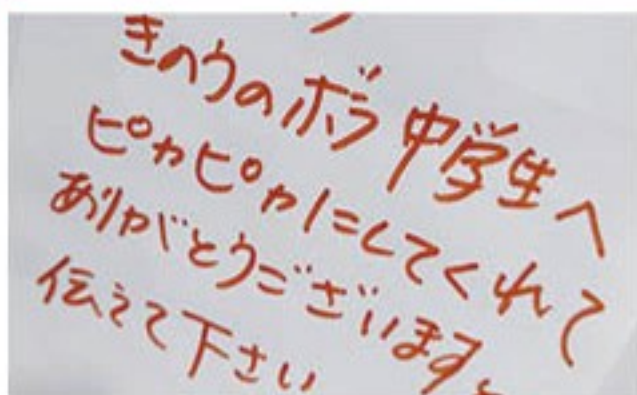 きのうのボラ 中学生へ
ピカピカにしてくれて
ありがとうございますと
伝えて下さい